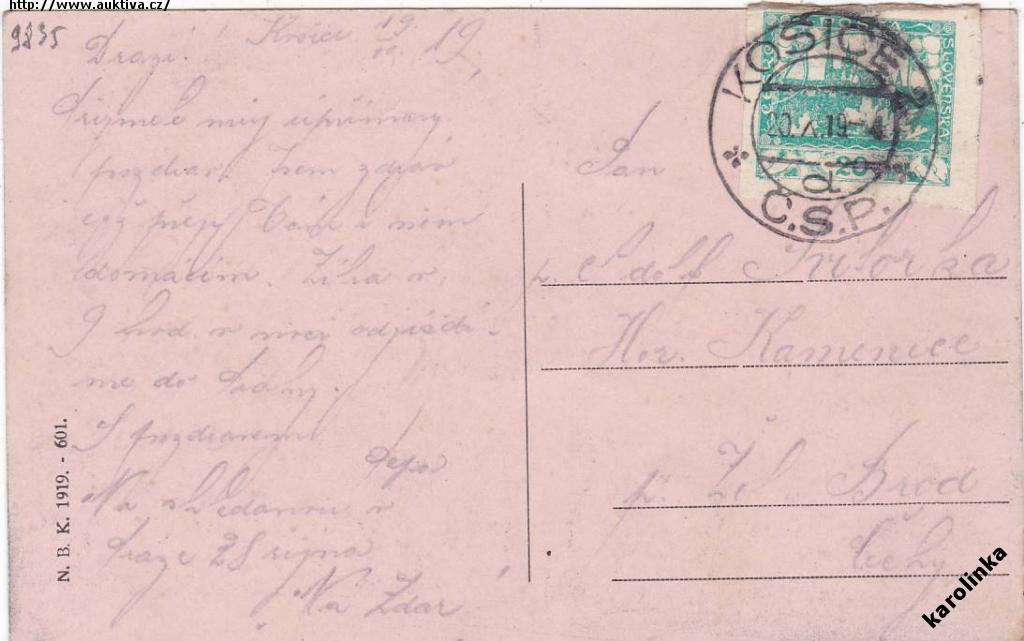 http://www.auktiva.cz/
9835
Drazí! Košice 19. 19
Přijměte můj upřímný
pozdrav. Jsem zdráv
což přeji Vám i všem
domácím. Zítra v
9 hod. v noci odjíždí-
me do Prahy.
S pozdravem
Pepa
Na shledanou v
Praze 28 října
Na Zdar
N. B. K. 1919. - 601.
KOŠICE 2
20. X. 19 - 4
d
Č.S.P.
SLOVENSKÁ
20
Pan
p.
Hor. Kamenice
p. Žel. Brod
Čechy
karolinka